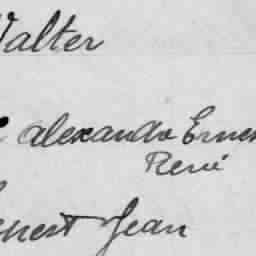 Walter
Alexandre Ernes
René
nest Jean